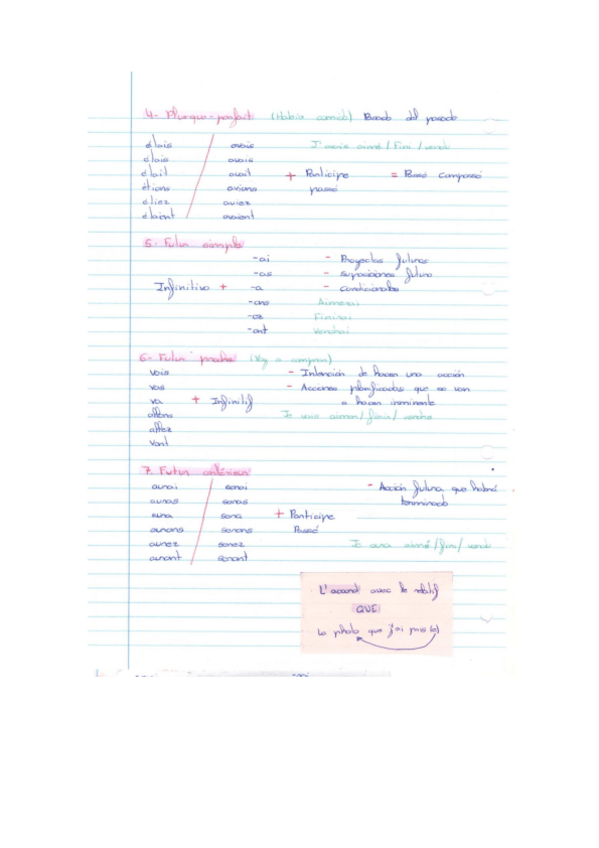 4- Plus-que-parfait (Había comido) Pasado del pasado
étais / avais J'avais aimé / Fini / vendu
étais / avais
était / avait + Participe = Passé composé
étions / avions passé
étiez / aviez
étaient / avaient
5- Futur simple
-ai - Proyectos futuros
-as - suposiciones futuro
Infinitivo + -a - condicionales
-ons Aimerai
-ez Finirai
-ont Vendrai
6- Futur proche (Voy a comprar)
Vais - Intención de hacer una acción
vas - Acciones planificadas que se van
va + Infinitif a hacer inminente
allons Je vais aimer / finir / vendre
allez
Vont
7. Futur antérieur
aurai / serai - Acción futura que habrá
auras / seras terminado
aura / sera + Participe
aurons / serons Passé
aurez / serez aimé / fini / vendu
auront / seront
L'accord avec le relatif
QUE
La photo que j'ai pris(e)